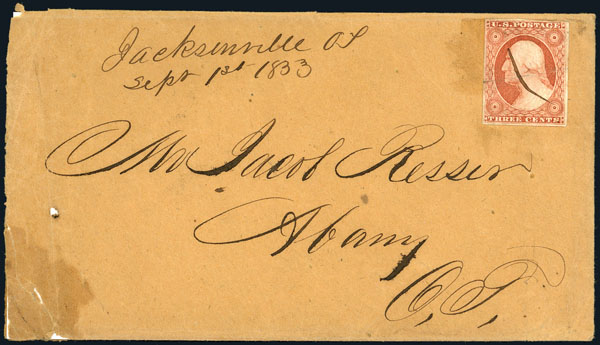 Jacksonville OT
Sept 1st 1853
U.S. POSTAGE
THREE CENTS
Mr Jacob Resser
Abany
O.T.